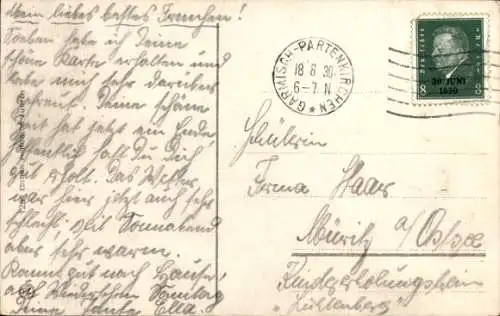 Mein liebes bestes Franchen!
Soeben habe ich Deine
schöne Karte erhalten und
habe mich sehr darüber
gefreut. Deine schöne
Zeit hat jetzt ein Ende
hoffentlich hast Du Dich
gut erholt. Das Wetter
war hier jetzt auch sehr
schlecht, seit Sonnabend
aber sehr warm.
Kommt gut nach Hause!
Auf Wiedersehen Sonntag
Deine Tante Ella.
GARMISCH-PARTENKIRCHEN
18 8 30
6-7 N
30. JUNI
1930
8 8
Schülerin
Irma Haas
Müritz a/Ostsee
Kindererholungsheim
"Lichtenberg"